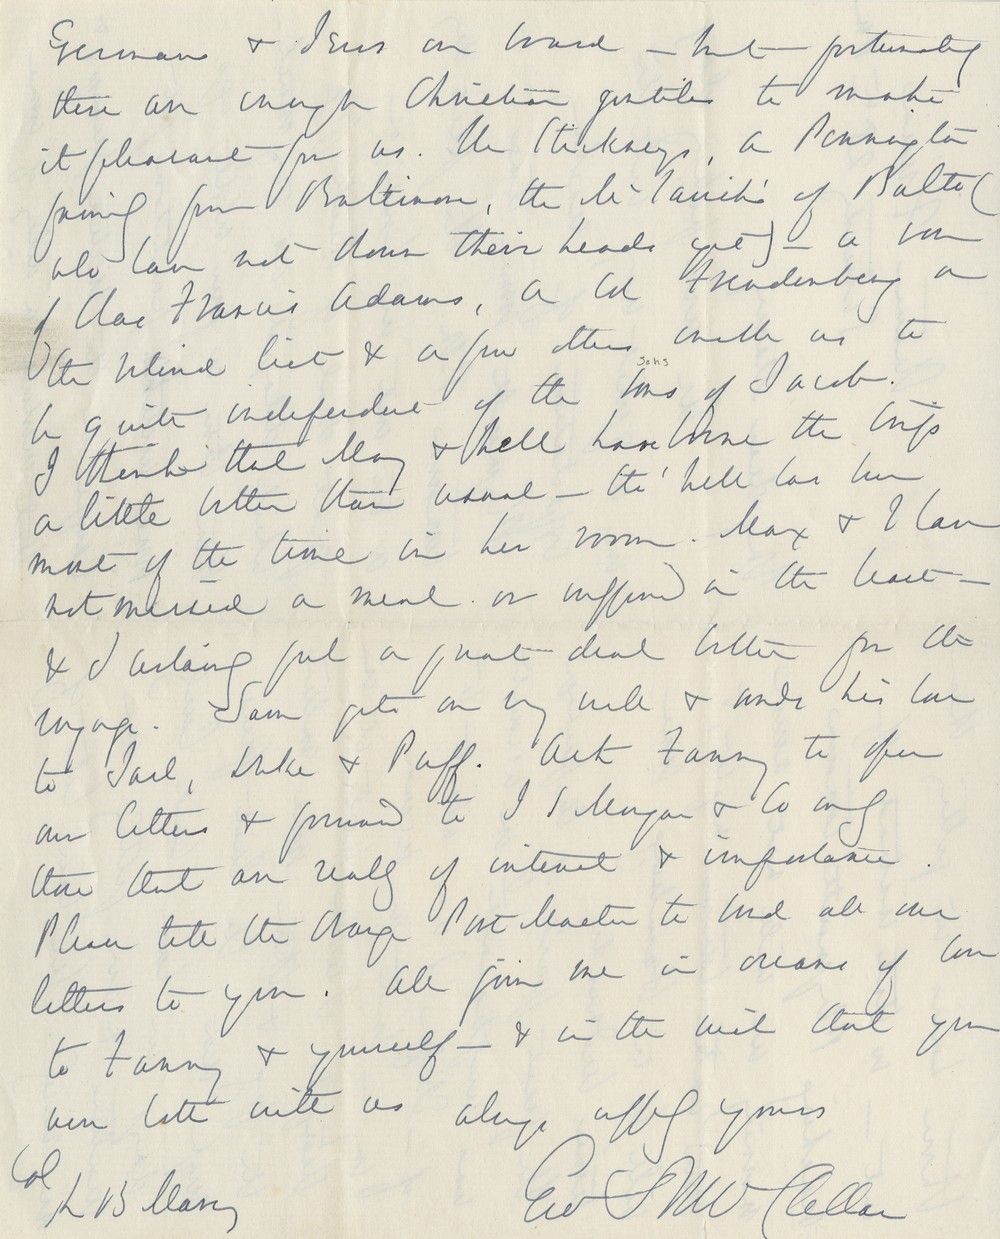 Germans & Jews on board – but fortunately
there are enough Christian gentiles to make
it pleasant for us. The Stickneys, a Pennington
family from Baltimore, the McTavish's of Balto (
who have not shown their heads yet) – a son
of Chas Francis Adams, a Col Freudenberg on
the retired list & a few others enable us to
be quite independent of the sons of Jacob.
sons
I think that May & Nell have borne the trip
a little better than usual – tho' Nell has been
most of the time in her room. Max & I have
not missed a meal or suffered in the least –
& I certainly feel a great deal better for the
voyage. Sam gets on very well & sends his love
to Duke & Puff. Ask Fanny to open
our letters & forward to J S Morgan & Co only
those that are really of interest & importance.
Please tell the Orange Post Master to send all our
letters to you. All join me in oceans of love
to Fanny & yourself – & in the wish that you
were both with us always affly yours
Col
R B Marcy
Geo B McClellan